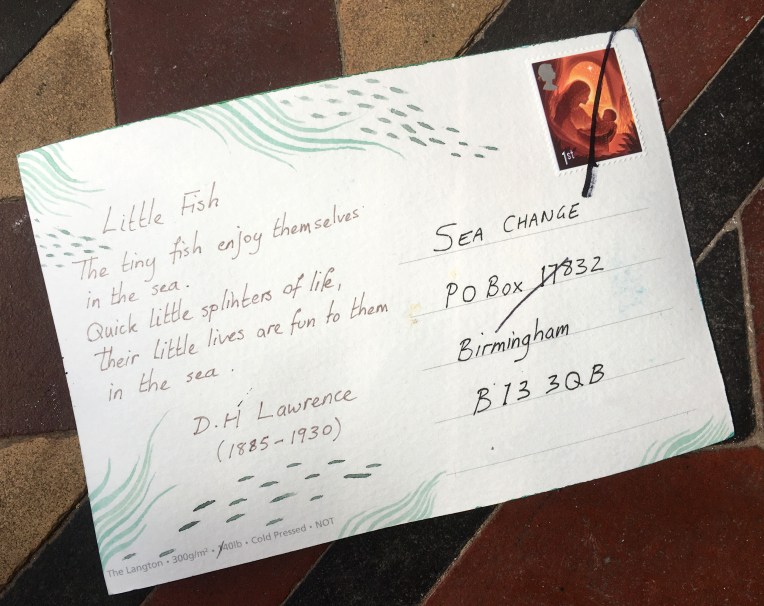 Little Fish
The tiny fish enjoy themselves
in the sea.
Quick little splinters of life,
their little lives are fun to them
in the sea.
D.H Lawrence
(1885-1930)
1st
SEA CHANGE
PO Box 17832
Birmingham
B13 3QB
The Langton • 300g/m² • 140lb • Cold Pressed • NOT